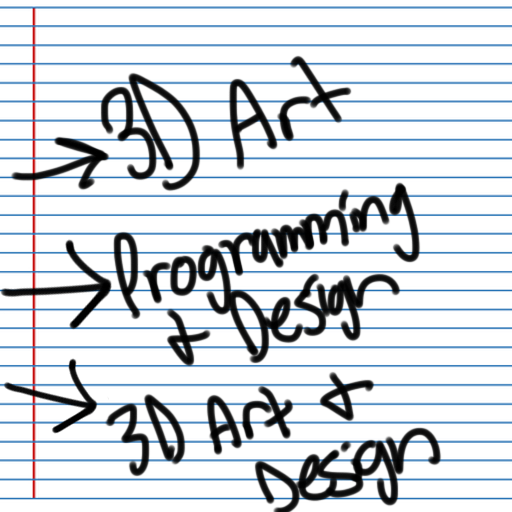 → 3D Art
→ Programming
& Design
→ 3D Art &
Design